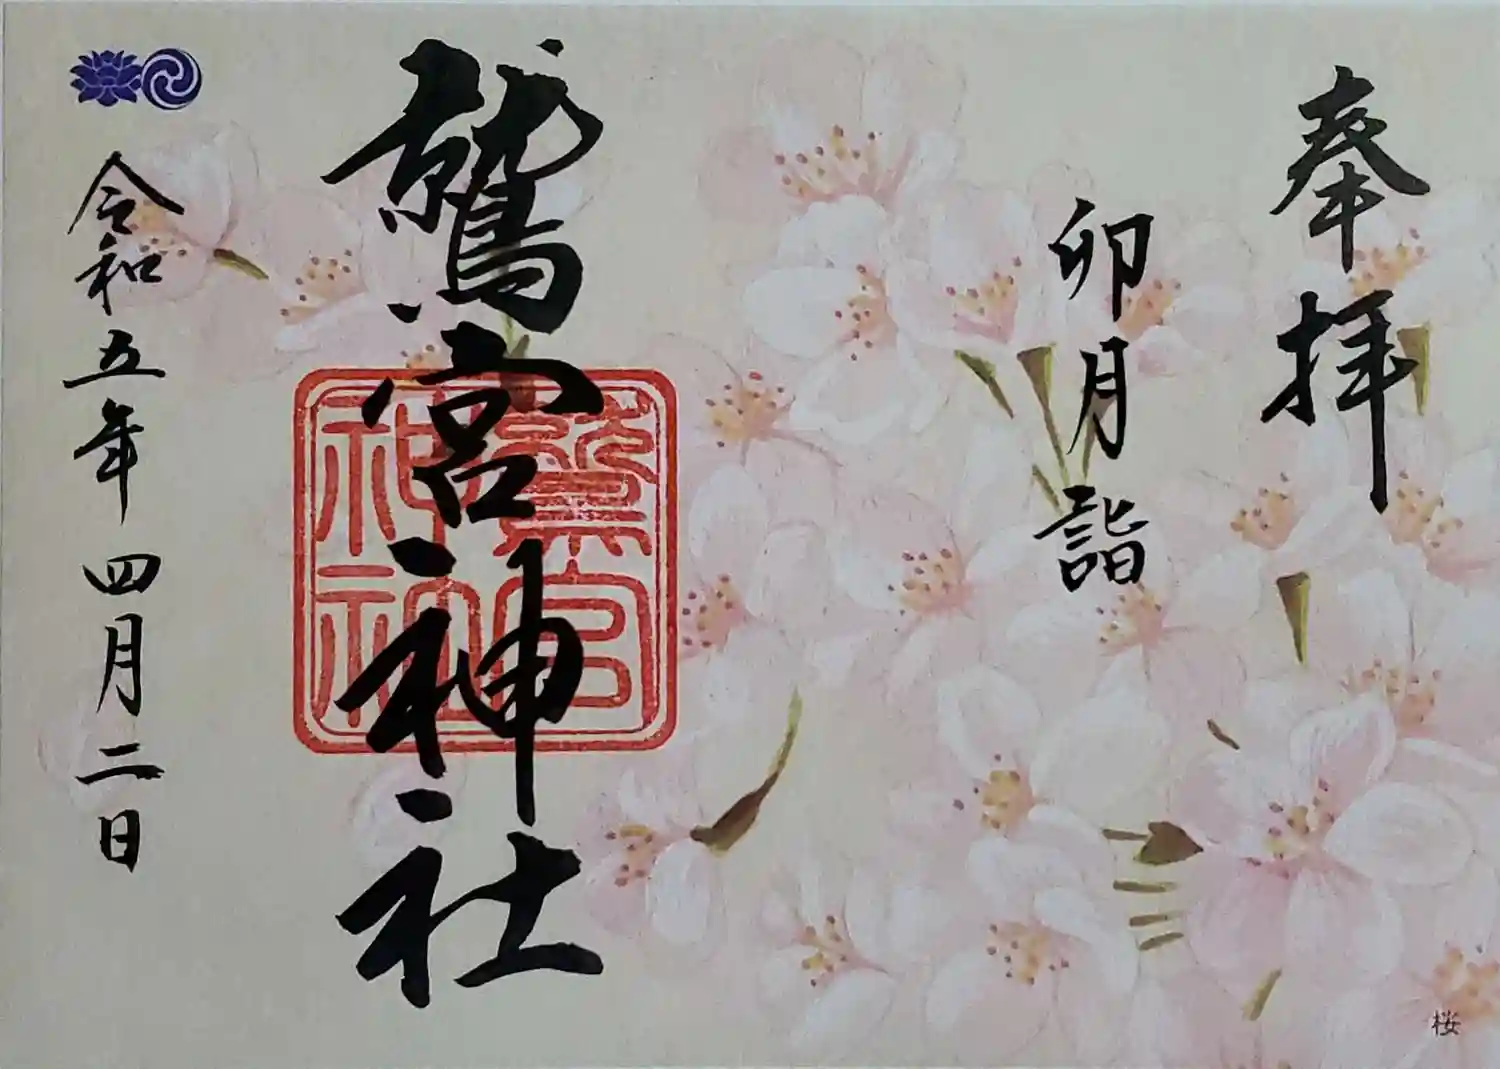 奉拝
卯月詣
鷲宮神社
鷲宮
神社
令和五年四月二日
桜